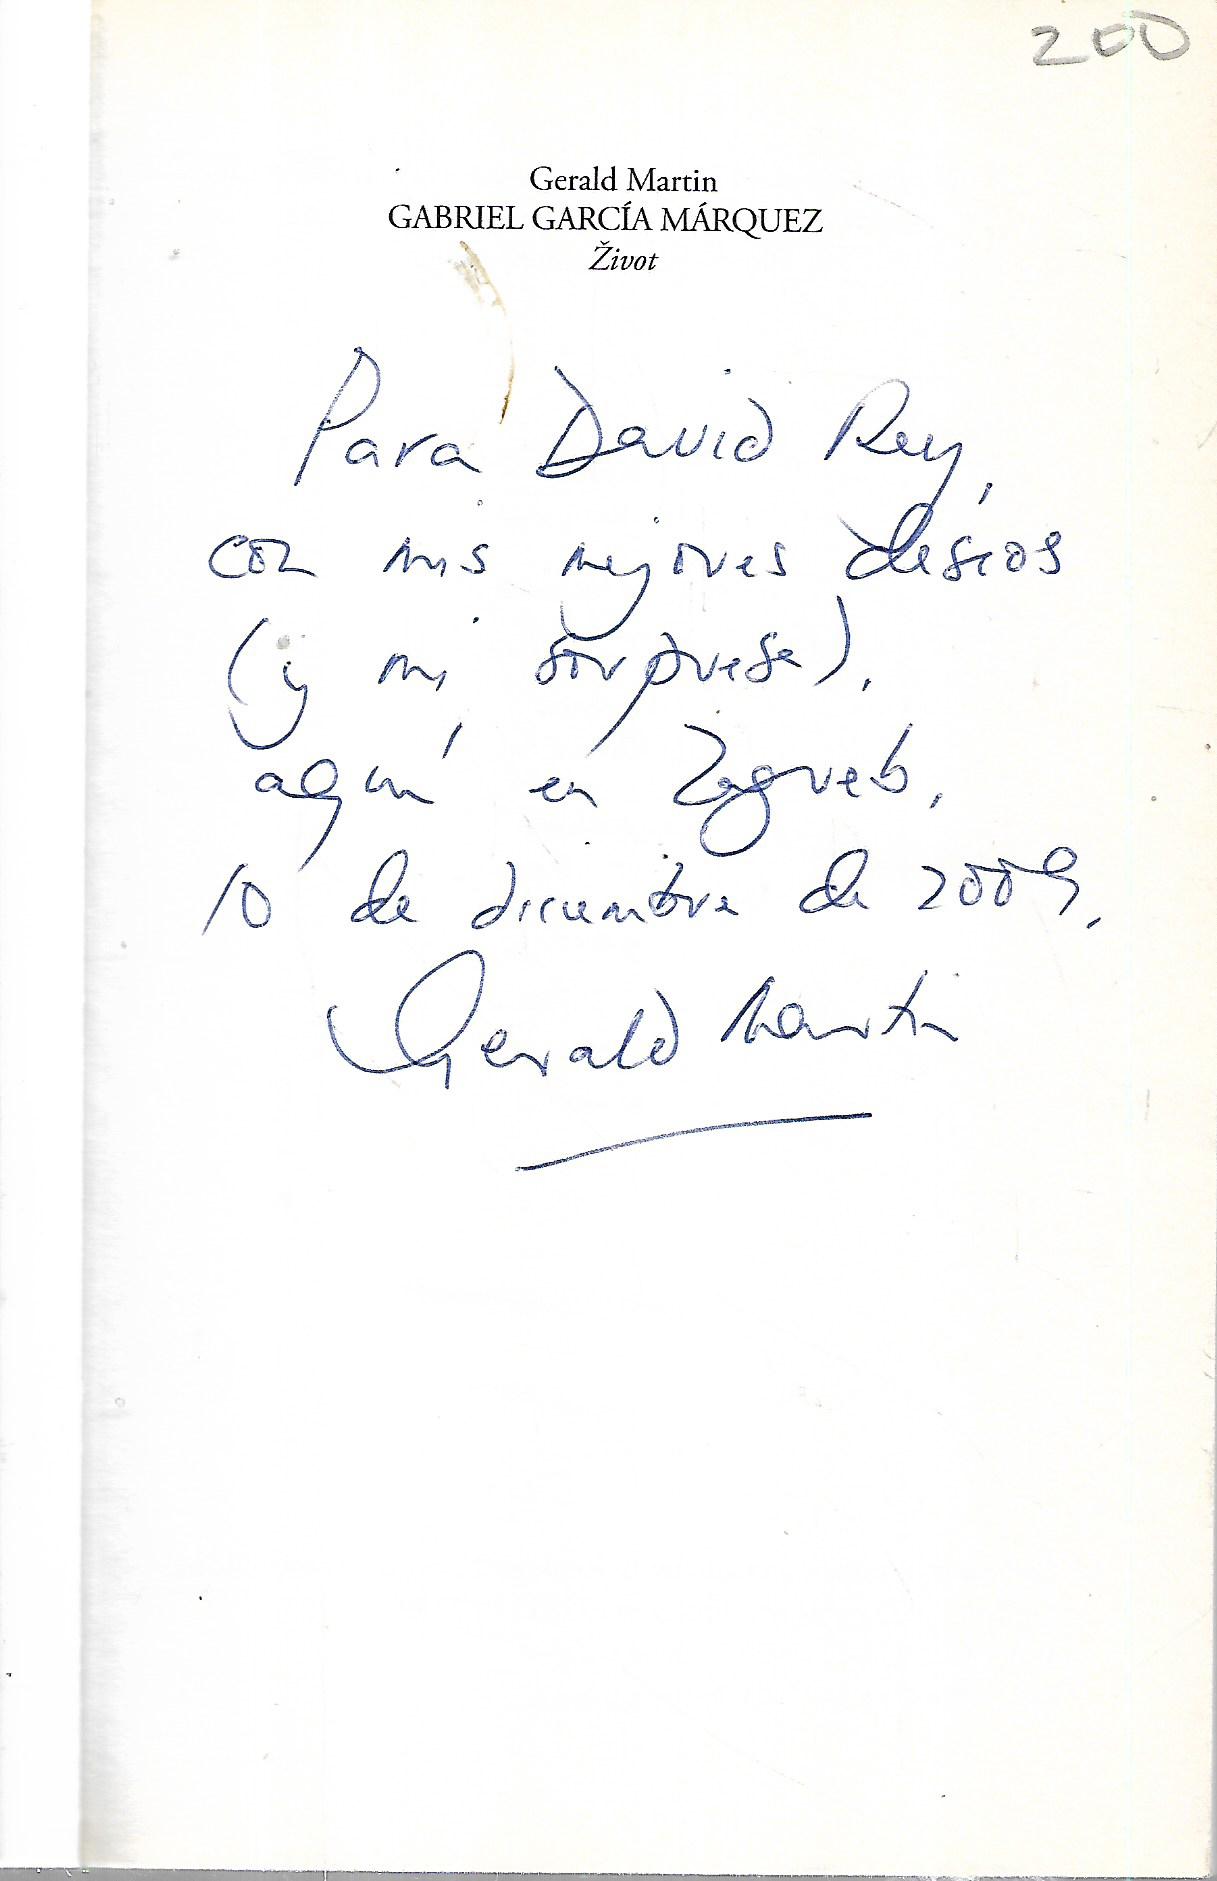 200
Gerald Martin
GABRIEL GARCÍA MÁRQUEZ
Život
Para David Rey,
con mis mejores deseos
(y mi sorpresa),
aquí en Zagreb,
10 de diciembre de 2009,
Gerald Martin